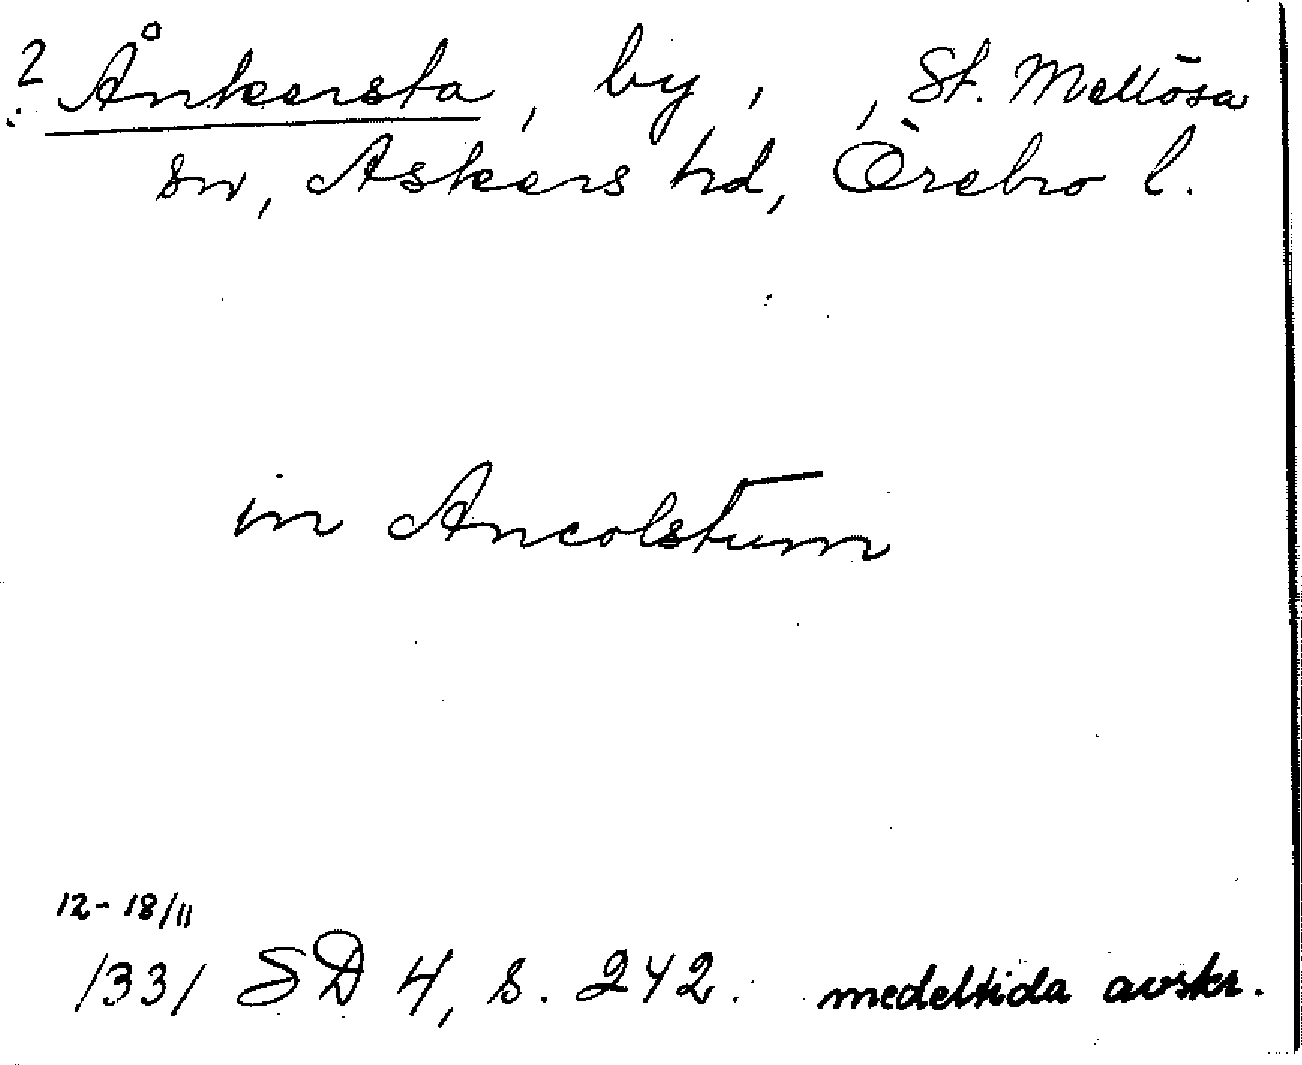 ? Ånkersta, by, , St. Mellösa
sn, Askers hd, Örebro l.
in Ancolstum
12-18/11
1331 SD 4, s. 242. medeltida avskr.